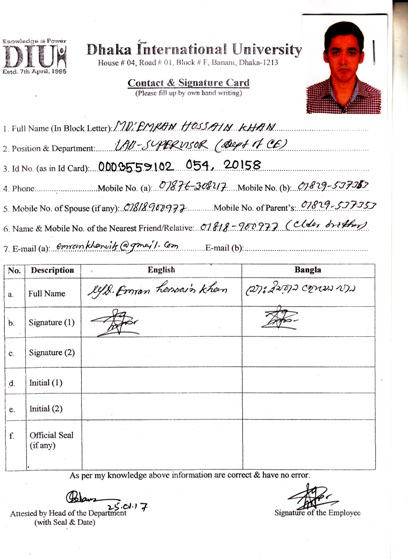 Knowledge is Power
DIU
Estd. 7th April, 1995
Dhaka International University
House # 04, Road # 01, Block # F, Banani, Dhaka-1213
Contact & Signature Card
(Please fill up by own hand writing)
1. Full Name (In Block Letter): MD. EMRAN HOSSAIN KHAN
2. Position & Department: LAB-SUPERVISOR (Dept of CE)
3. Id No. (as in Id Card): 0003559102 054, 20158
4. Phone: Mobile No. (a): 01876-308217 Mobile No. (b): 01829-537357
5. Mobile No. of Spouse (if any): 01818900977 Mobile No. of Parent's: 01829-537357
6. Name & Mobile No. of the Nearest Friend/Relative: 01818-900977 (Elder brother)
7. E-mail (a): @gmail.com E-mail (b):
No. Description English Bangla
a. Full Name MD. Emran Hossain Khan মোঃ ইমরান হোসেন খান
b. Signature (1)
c. Signature (2)
d. Initial (1)
e. Initial (2)
f. Official Seal
(if any)
As per my knowledge above information are correct & have no error.
25.01.17
Attested by Head of the Department
(with Seal & Date)
Signature of the Employee